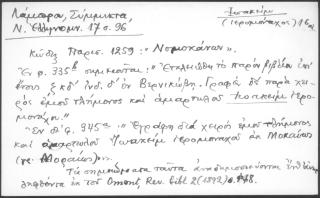 Λάμπρου, Σύμμικτα,
Ν. Ἑλληνομν. 17 σ. 96
Ἰωακείμ
(ἱερομόναχος) 16
Κώδιξ Παρισ. 1259: "Νομοκάνων".
"Ἐν φ. 335 σημειοῦται: "Ἐτελειώθη τὸ παρὸν βιβλίον ἐπὶ
ἔτους ἰνδ. δ' ἐν Βερνικώβῃ. Γραφὲ δὲ παρὰ χει-
ρὸς ἐμοῦ τλήμονος καὶ ἁμαρτωλοῦ Ἰωακεὶμ ἱερο-
μονάχου."
"Ἐν δὲ φ. 345 "Ἐγράφη διὰ χειρὸς ἐμοῦ τλήμονος
καὶ ἁμαρτωλοῦ Ἰωακεὶμ ἱερομονάχου ἐκ Μοκαίως
Μοραίως)".
Τὰ σημειώματα ταῦτα ἀναδημοσιεύονται
ληφθέντα ἐκ τοῦ Omont, Rev. bibl. 2 (1892) σ.